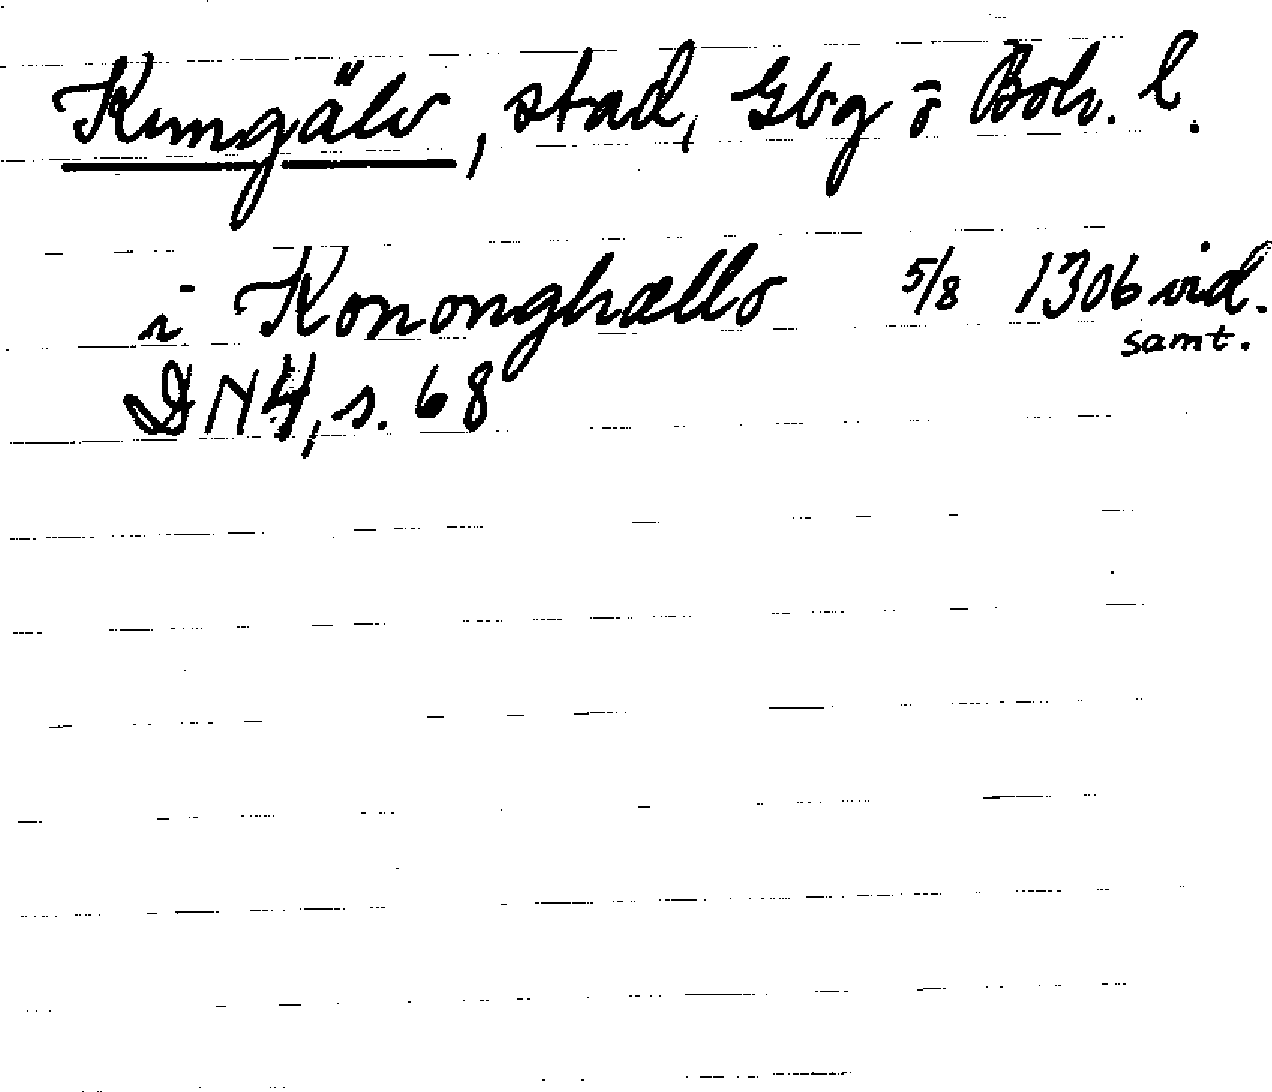 Kungälv, stad, Gbg o Boh. l.
i Kononghællo 5/8 1306 vid.
samt.
DN 4, s. 68